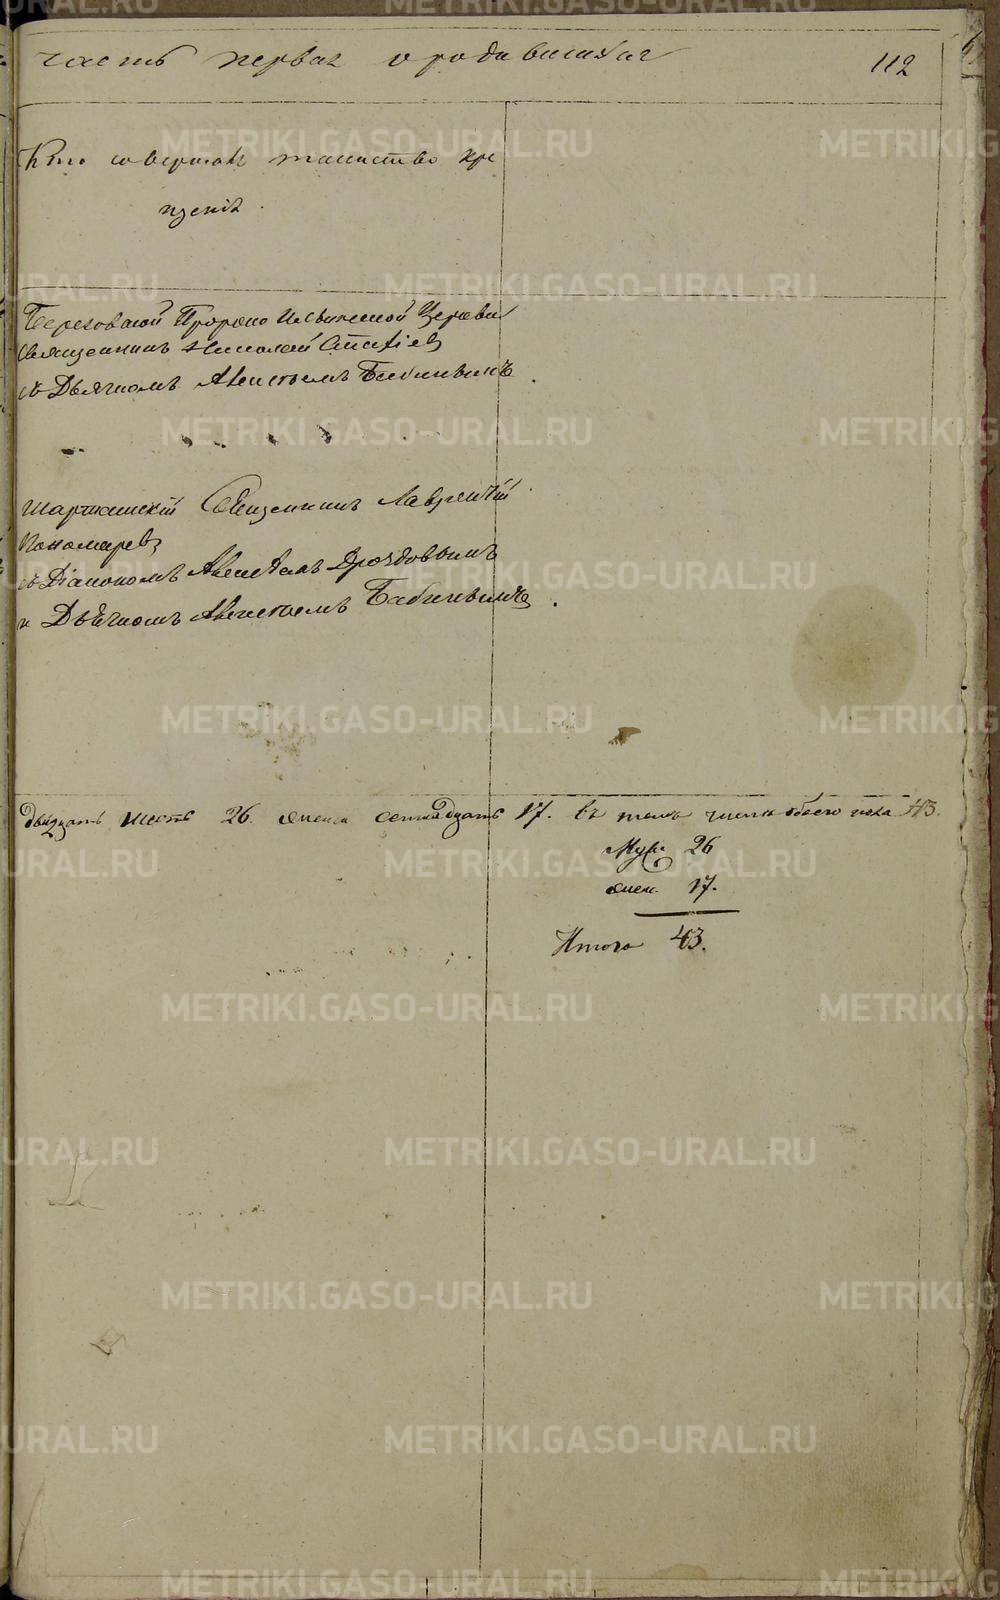 часть первая о родившихся
112
Кто совершалъ таинство кре
щенія.
Березовской Пророко Ильинской Церкви
Священникъ Николай
съ Дьячкомъ Алексѣемъ Бабинымъ.
Шарташскій Священникъ Лаврентій
Пономаревъ
съ Діакономъ Дроздовымъ
и Дьячкомъ Алексѣемъ Бабинымъ.
двадцать шесть 26. женска семнадцать 17. въ томъ числѣ обоего пола 43.
Муж. 26
жен. 17.
Итого 43.
METRIKI.GASO-URAL.RU